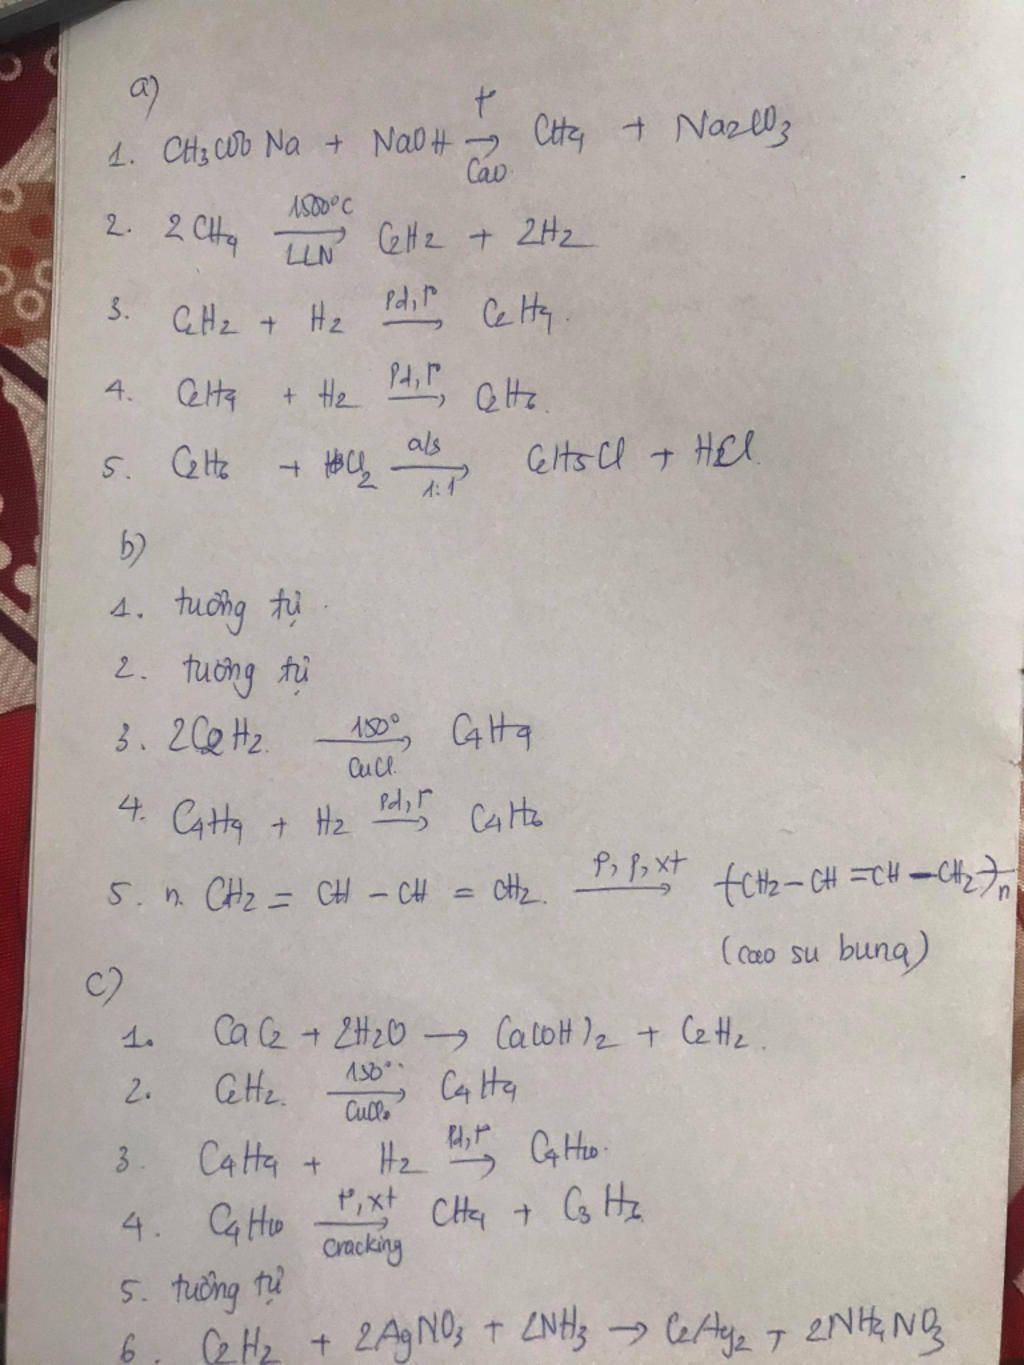 a)
1. CH3COONa + NaOH t° → CaO CH4 + Na2CO3
2. 2CH4 1500°C → LLN C2H2 + 2H2
3. C2H2 + H2 Pd, t° → C2H4.
4. C2H4 + H2 Pd, t° → C2H6.
5. C2H6 + Cl2 a/s → 1:1 C2H5Cl + HCl.
b)
1. tương tự.
2. tương tự
3. 2C2H2. 150° → CuCl. C4H4
4. C4H4 + H2 Pd, t° → C4H6
5. n. CH2 = CH - CH = CH2. t°, p, xt → (CH2 - CH = CH - CH2)n
(cao su buna)
c)
1. CaC2 + 2H2O → Ca(OH)2 + C2H2.
2. C2H2. 150° → CuCl. C4H4
3. C4H4 + H2 Pd, t° → C4H10.
4. C4H10 t°, xt → Cracking CH4 + C3H6
5. tương tự
6. C2H2 + 2AgNO3 + 2NH3 → C2Ag2 + 2NH4NO3